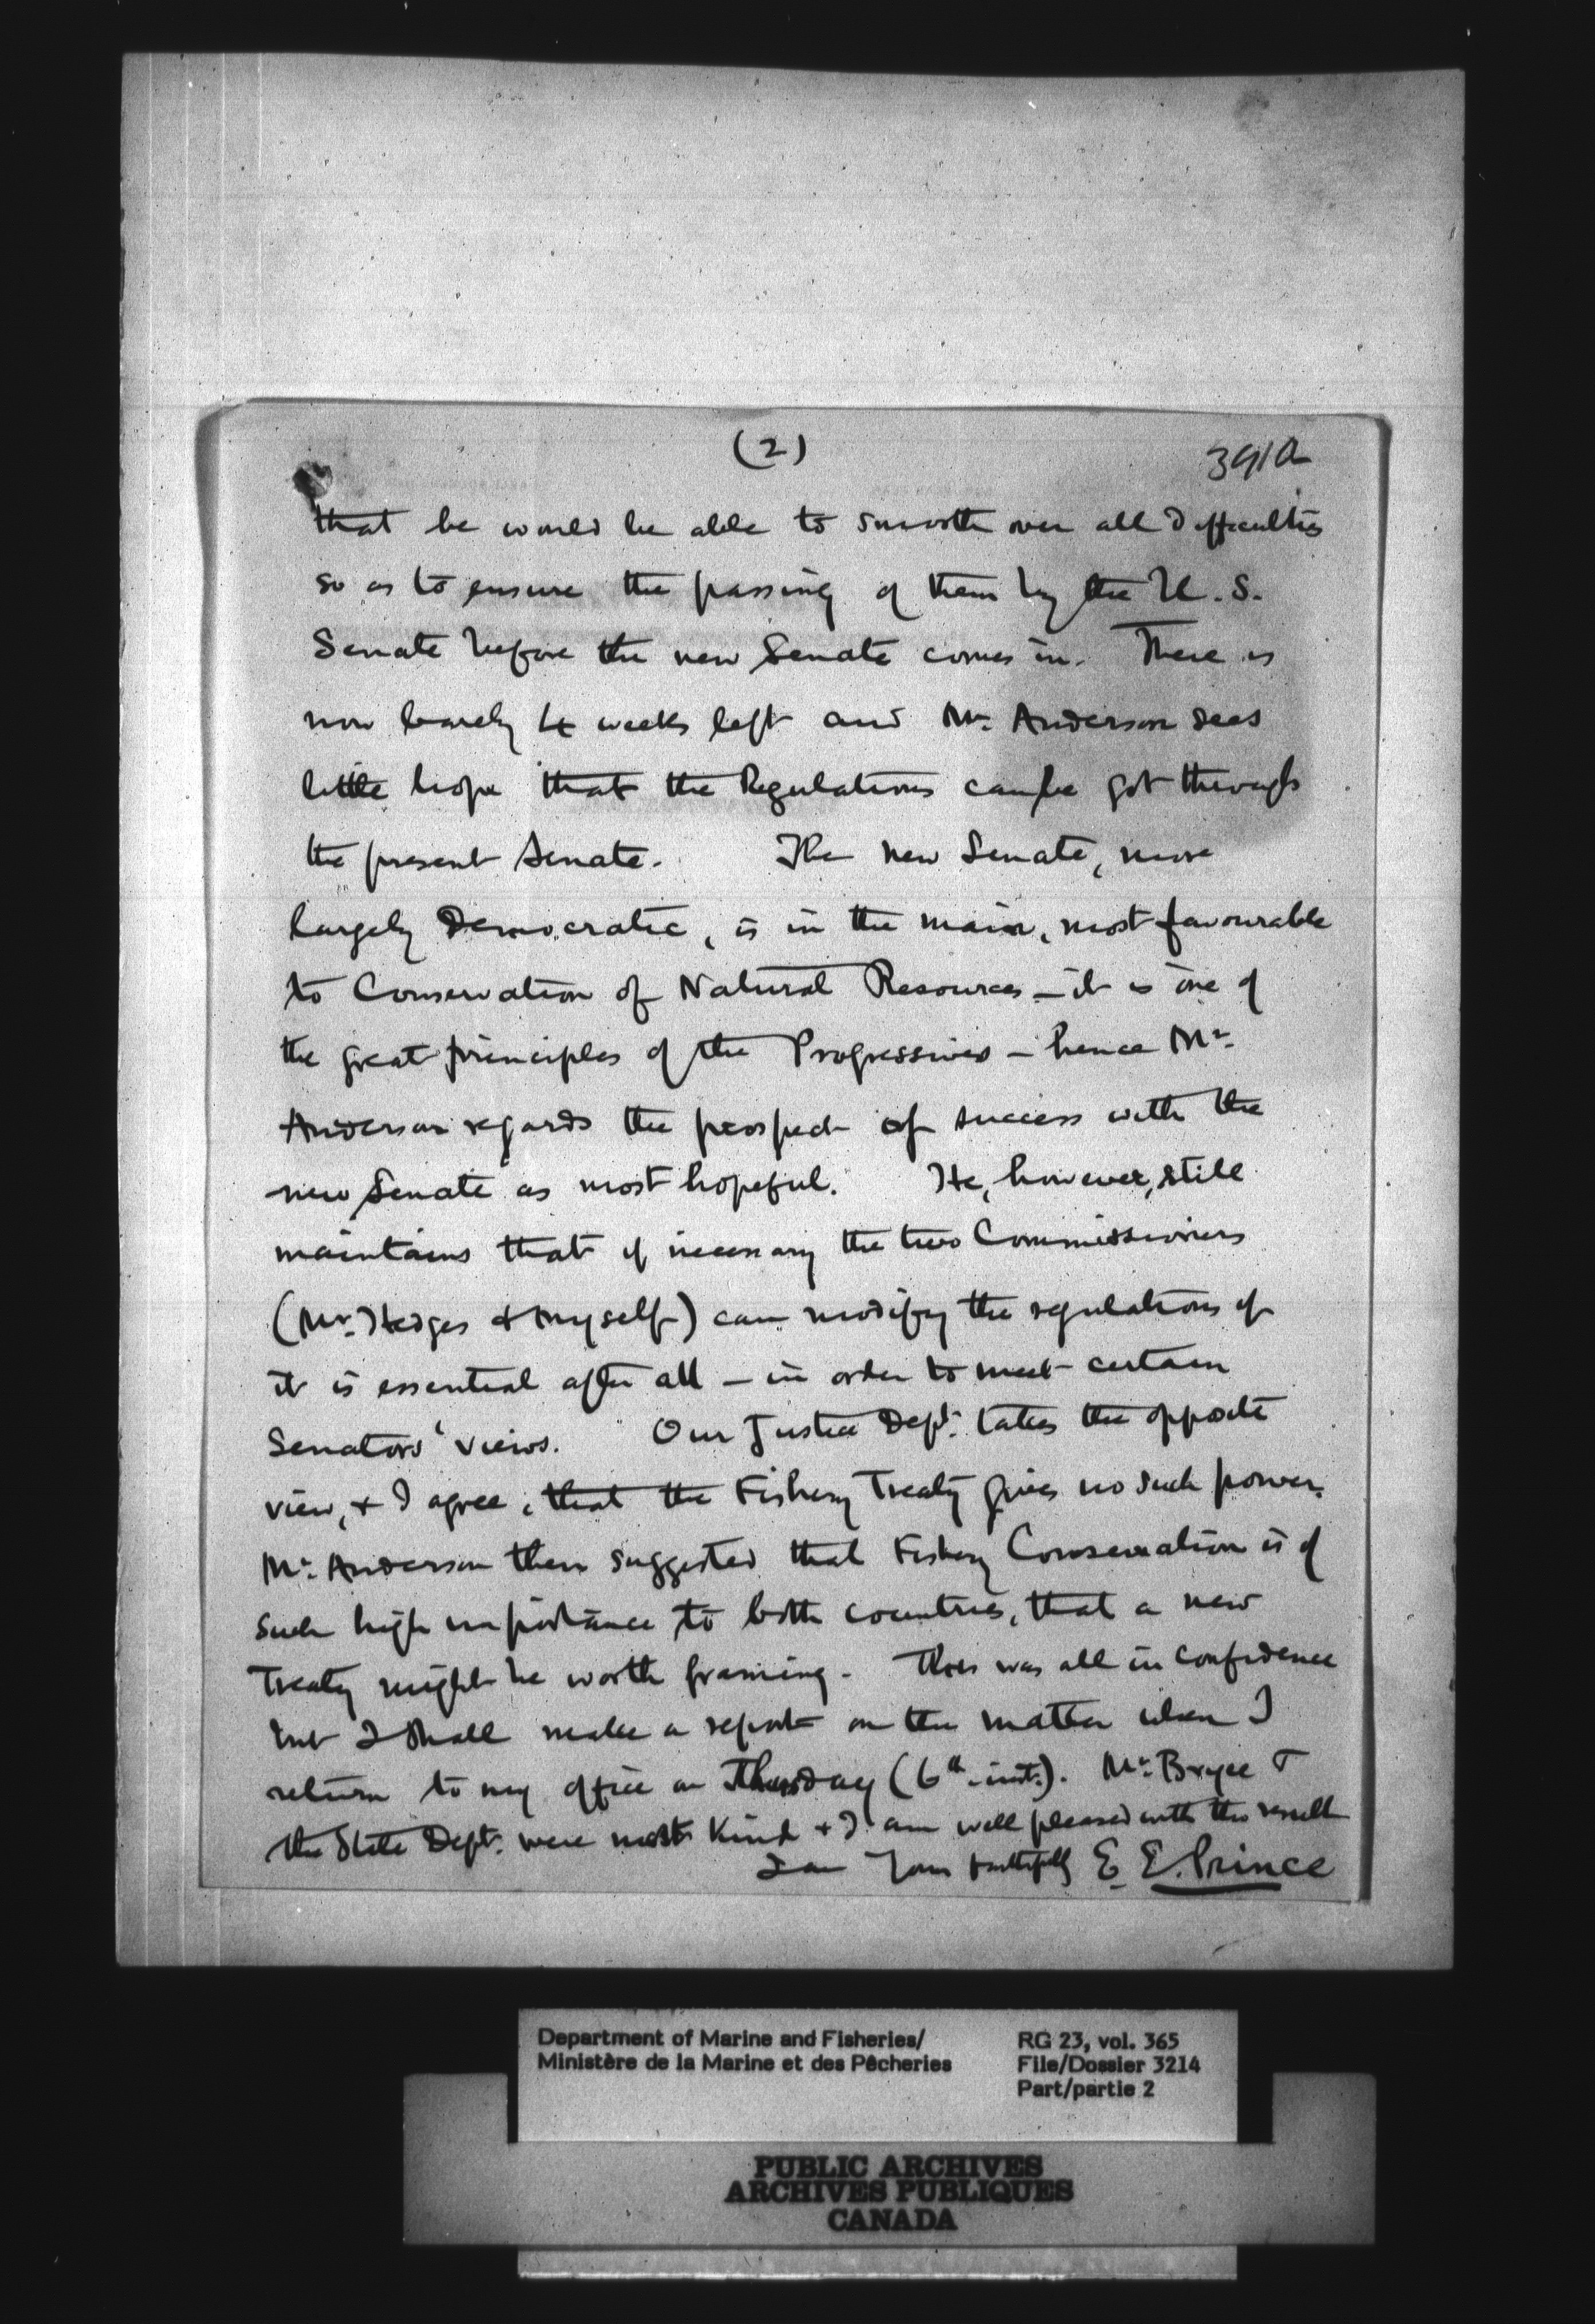 (2)
391a
that he would be able to smooth over all difficulties
so as to ensure the passing of them by the U.S.
Senate before the new Senate comes in. There is
now barely 4 weeks left and Mr. Anderson sees
little hope that the Regulations can be got through
the present Senate. The new Senate, more
largely Democratic, is in the main, most favourable
to Conservation of Natural Resources – it is one of
the great principles of the Progressives – hence Mr.
Anderson regards the prospect of success with the
new Senate as most hopeful. He, however, still
maintains that if necessary the two Commissioners
(Mr. Hedges & myself) can modify the regulations if
it is essential after all – in order to meet certain
Senators' views. Our Justice Dept. takes the opposite
view, & I agree, that the Fishery Treaty gives no such power.
Mr. Anderson then suggested that Fishery Conservation is of
such high importance to both countries, that a new
Treaty might be worth framing. This was all in confidence
but I shall make a report on the matter when I
return to my office on Thursday (6th inst.). Mr. Bryce &
the State Dept. were most kind & I am well pleased with the result
I am Yours faithfully E. E. Prince
Department of Marine and Fisheries/
Ministère de la Marine et des Pêcheries
RG 23, vol. 365
File/Dossier 3214
Part/partie 2
PUBLIC ARCHIVES
ARCHIVES PUBLIQUES
CANADA